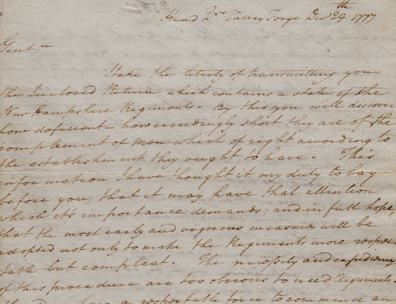 Head Qrs Valley Forge Decr 29th 1777
Gentn
I take the liberty of transmitting you
the Inclosed Return which contains a state of the
New Hampshire Regiments. By this you will discover
how deficient — how exceedingly short they are of the
complement of men which of right according to
the establishment they ought to have. This
information I have thought it my duty to lay
before you, that it may have that attention
which its importance demands; and in full hope,
that the most early and vigorous measures will be
adopted not only to make the Regiments more respec-
table but compleat. The necessity and expediency
of this procedure are too obvious to need Arguments.
have a respectable force to commence an